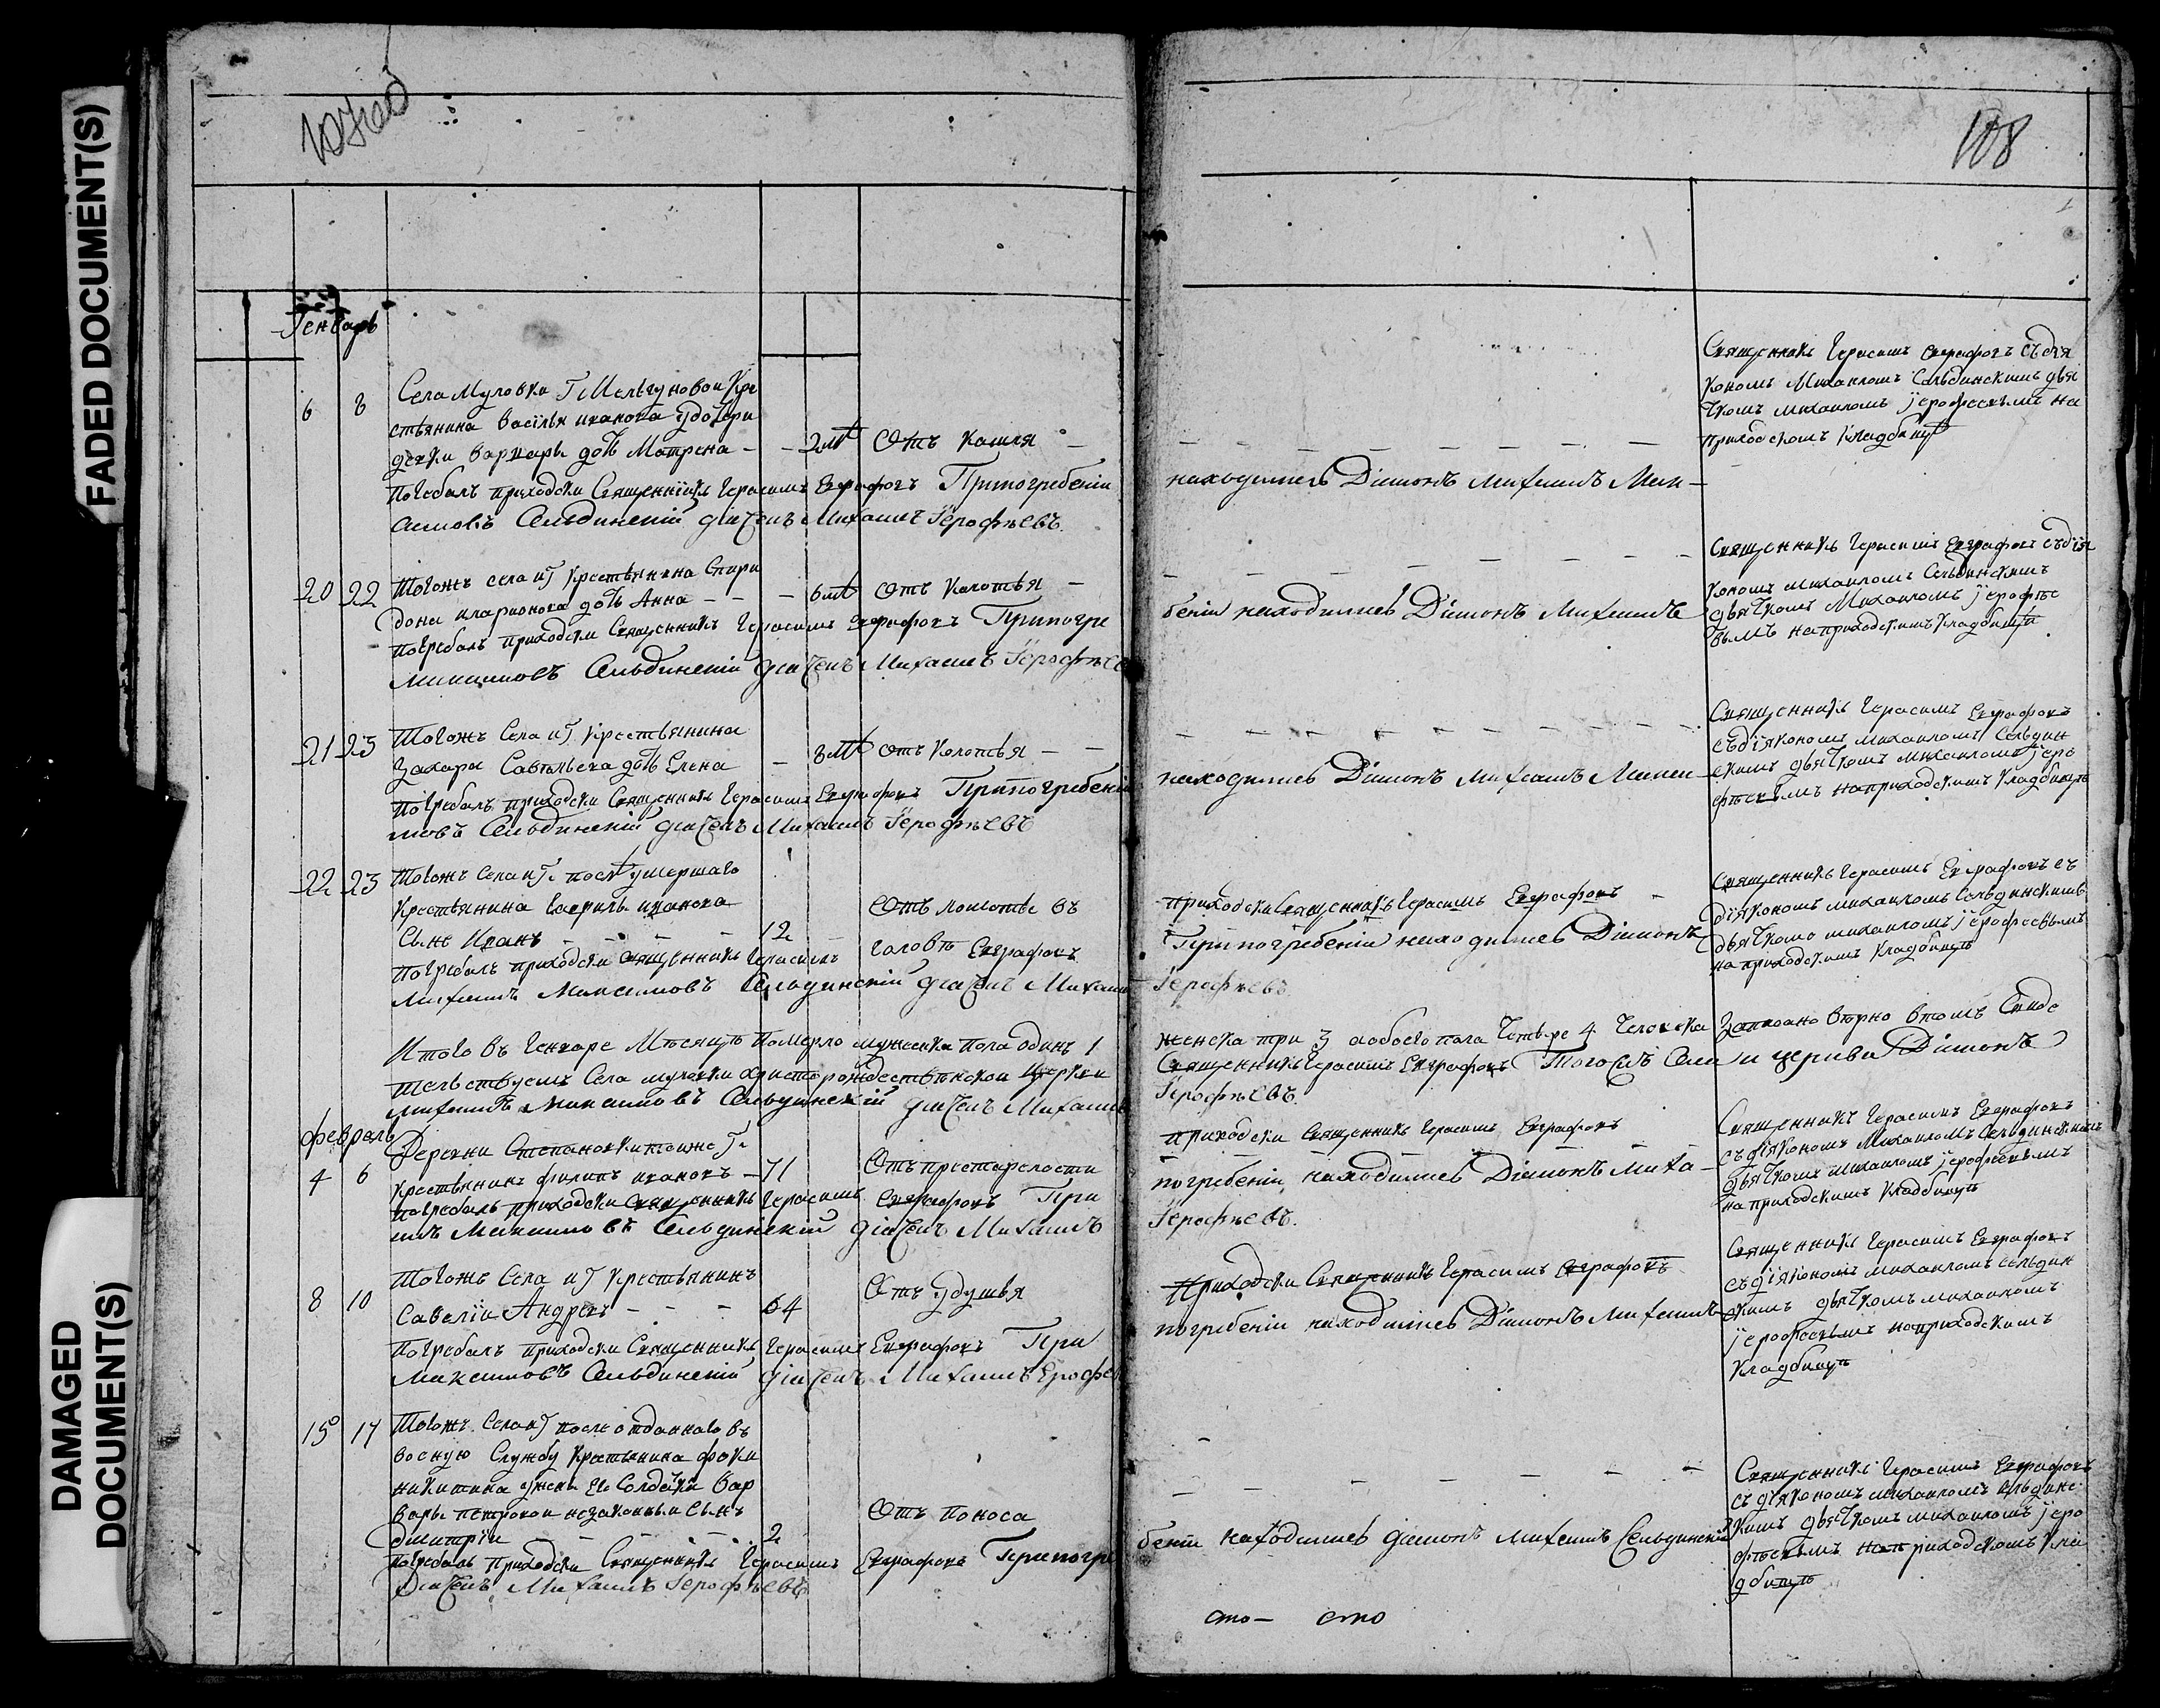 FADED DOCUMENT(S)
DAMAGED
DOCUMENT(S)
108
Генварь
6 8
Села Муловки Г Мельгуновой Кре
стьянина Василья иванова удочери
девки варвары дочь Матрена - - 2 мс Отъ Кашля -
Погребалъ приходски Священникъ Герасимъ Евграфовъ При погребении
находились Диаконъ Михаилъ Мак-
симовъ Сельдинский дьячекъ Михаилъ Иерофѣевъ.
Священникъ Герасимъ Евграфовъ съ дия
кономъ Михаиломъ Сельдинскимъ дья
чкомъ михаиломъ иерофеевымъ на
приходскомъ кладбищѣ
20 22
Тогожъ села иг крестьянина Спири
дона иларионова дочь Анна - - - 6 мс отъ Колотья -
погребалъ приходски Священникъ Герасимъ Евграфовъ При погре
бении находились Диаконъ Михаилъ
Максимовъ Сельдинский дьячекъ Михаилъ Иерофѣев
Священникъ Герасимъ Евграфовъ съ дия
кономъ михаиломъ Сельдинскимъ
дьячкомъ Михаиломъ иерофѣе
вымъ на приходскимъ кладбищи
21 23
Тогожъ Села иг Крестьянина
Захара Савельева дочь Елена - 8 мс отъ Колотья - -
погребалъ приходски Священникъ Герасимъ Евграфовъ При погребении
находились Диаконъ Михаилъ Макси-
мовъ Сельдинский дьячекъ Михаилъ Иерофѣевъ
Священникъ Герасимъ Евграфовъ
съ дияконом михаиломъ Сельдин
скимъ дьячкомъ михаиломъ иеро
фѣевымъ на приходскимъ кладбищѣ
22 23
Тогожъ Села иг. послѣ умершаго
Крестьянина Гаврилы иванова
Сынъ Иванъ - - - - 12 - Отъ ломоты въ
головѣ
погребалъ приходски священникъ Герасимъ Евграфовъ
приходски Священникъ Герасимъ Евграфовъ -
При погребении находились Диаконъ
Михаилъ Максимовъ Сельдинский дьячекъ Михаилъ
Иерофѣевъ.
Священникъ Герасимъ Евграфовъ съ
дияконом михаиломъ Сельдинскимъ
дьячкомъ михаиломъ иерофеевымъ
на приходскимъ Кладбищѣ
Итого въ Генваре Месяце Померло мужеска пола одинъ 1
женска три 3 а обоего пола Четыре 4 Человека Записано верно в томъ Свиде
тельствуемъ Села муловки христорождественской Церкви
Священникъ Герасимъ Евграфовъ Того Жъ Села и церкви Диаконъ
Михаилъ Максимовъ Сельдинский дьячекъ Михаилъ
Иерофѣевъ.
февраль
4 6
Деревни Степановки тоиже г.
крестьянинъ филипъ ивановъ - 71 Отъ престарелости
погребалъ приходски священникъ Герасимъ Евграфовъ При
приходски священникъ Герасимъ Евграфовъ
погребении находились Диаконъ Миха-
илъ Максимовъ Сельдинский дьячекъ Михаилъ
Иерофѣевъ.
Священникъ Герасимъ Евграфовъ
съ дияконом Михаиломъ Сельдинскимъ
дьячкомъ михаиломъ иерофеевымъ
на приходскимъ Кладбищѣ
8 10
Тогожъ Села иг Крестьянинъ
Савелий Андреевъ - - - 64 Отъ удушья
Погребалъ приходски Священникъ Герасимъ Евграфовъ При
Приходски Священникъ Герасимъ Евграфовъ
погребении находились Диаконъ Михаилъ
Максимовъ Сельдинский дьячекъ Михаилъ Ерофе
Священникъ Герасимъ Евграфовъ
съ дияконом михаиломъ сельдин
скимъ дьячкомъ михаиломъ
иерофеевымъ на приходскимъ
Кладбищѣ
15 17
Тогожъ Села иг после отданнаго въ
военную Службу Крестьянина фоки
никитина жены Ево Солдатки Вар
вары петровой незаконный Сынъ
Дмитрий - - - 2 Отъ Поноса
погребалъ Приходски Священникъ Герасимъ Евграфовъ При погре
бении находились диаконъ Михаилъ Сельдинский
Дьячекъ Михаилъ Иерофѣевъ
Священникъ Герасимъ Евграфовъ
съ дияконом михаиломъ сельдинс
кимъ дьячкомъ михаиломъ иеро
фѣевымъ на приходскомъ кла
дбищѣ
сто- сто